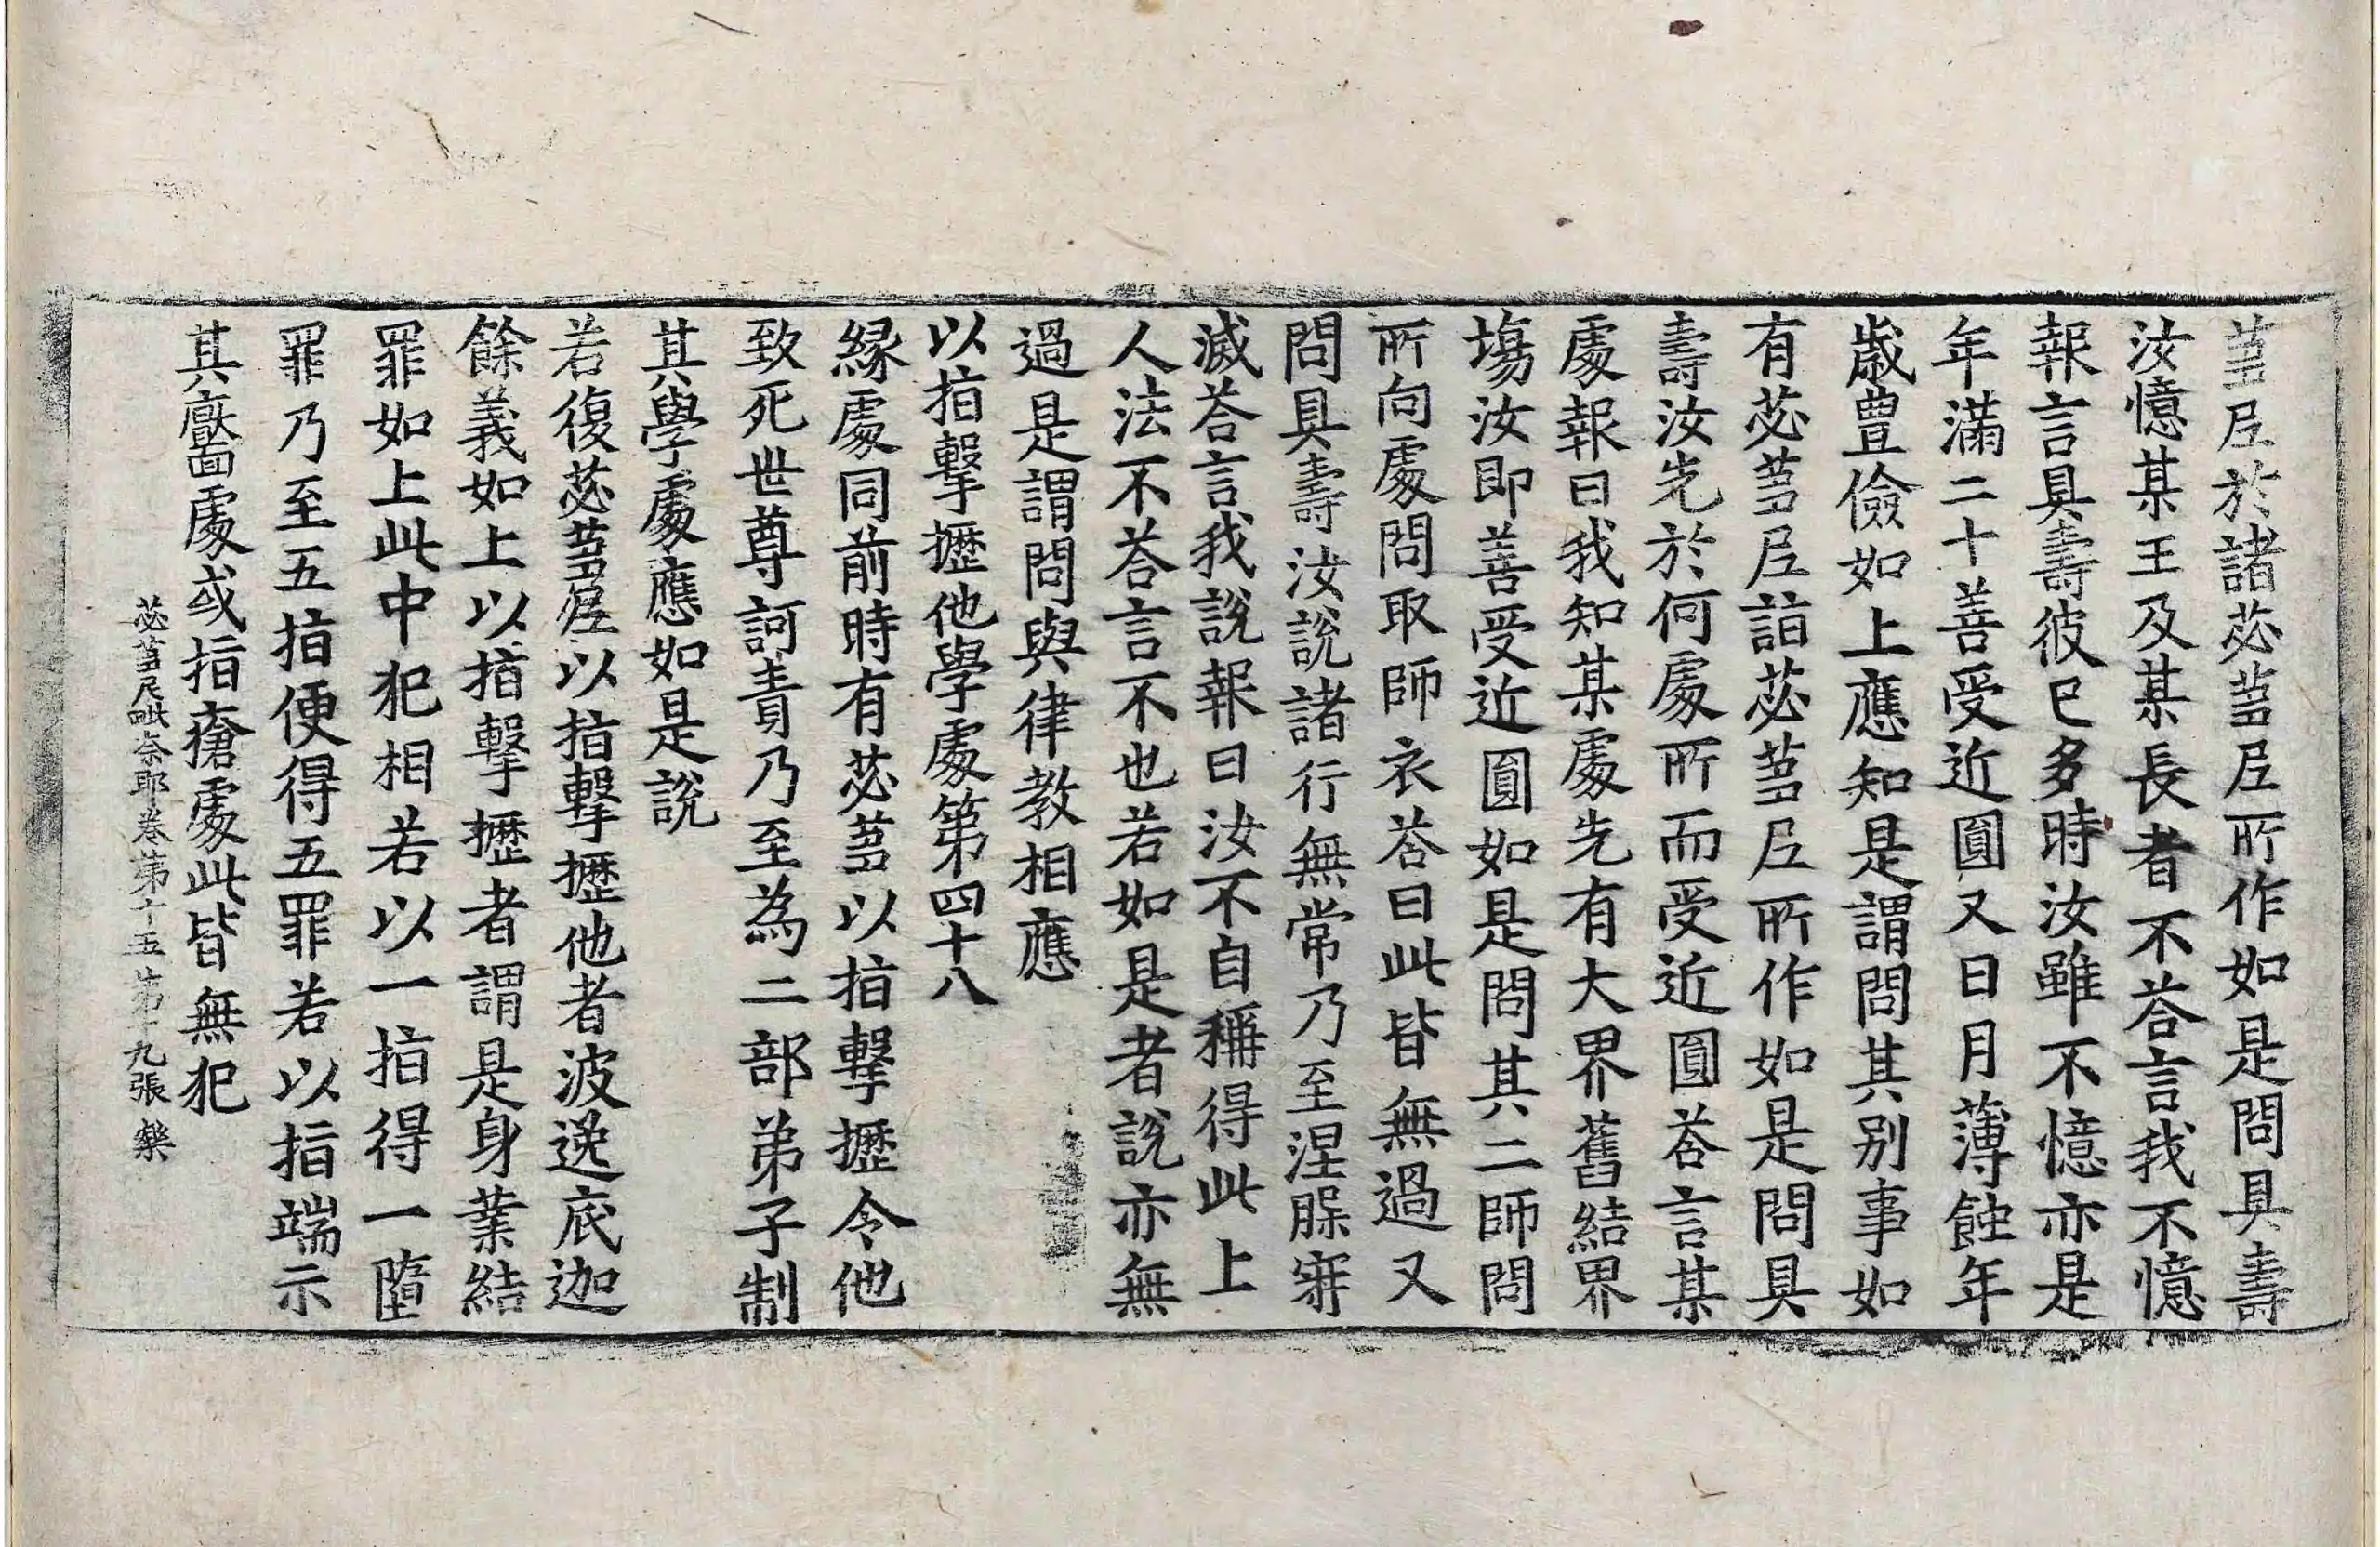 蒭尼於諸苾蒭尼所作如是問具壽
汝憶某王及某長者不荅言我不憶
報言具壽彼已多時汝雖不憶亦是
年滿二十善受近圓又日月薄蝕年
歲豊儉如上應知是謂問其別事如
有苾蒭尼詣苾蒭尼所作如是問具
壽汝先於何處所而受近圓荅言某
處報曰我知某處先有大界舊結界
場汝即善受近圓如是問其二師問
所向處問取師衣荅曰此皆無過又
問具壽汝說諸行無常乃至涅槃寂
滅荅言我說報曰汝不自稱得此上
人法不荅言不也若如是者說亦無
過是謂問與律教相應
以指擊攊他學處第四十八
緣處同前時有苾蒭以指擊攊令他
致死世尊訶責乃至為二部弟子制
其學處應如是說
若復苾蒭尼以指擊攊他者波逸底迦
餘義如上以指擊攊者謂是身業結
罪如上此中犯相若以一指得一墮
罪乃至五指便得五罪若以指端示
其黶處或指瘡處此皆無犯
苾蒭尼毗奈耶卷第十五 第十九張 槩